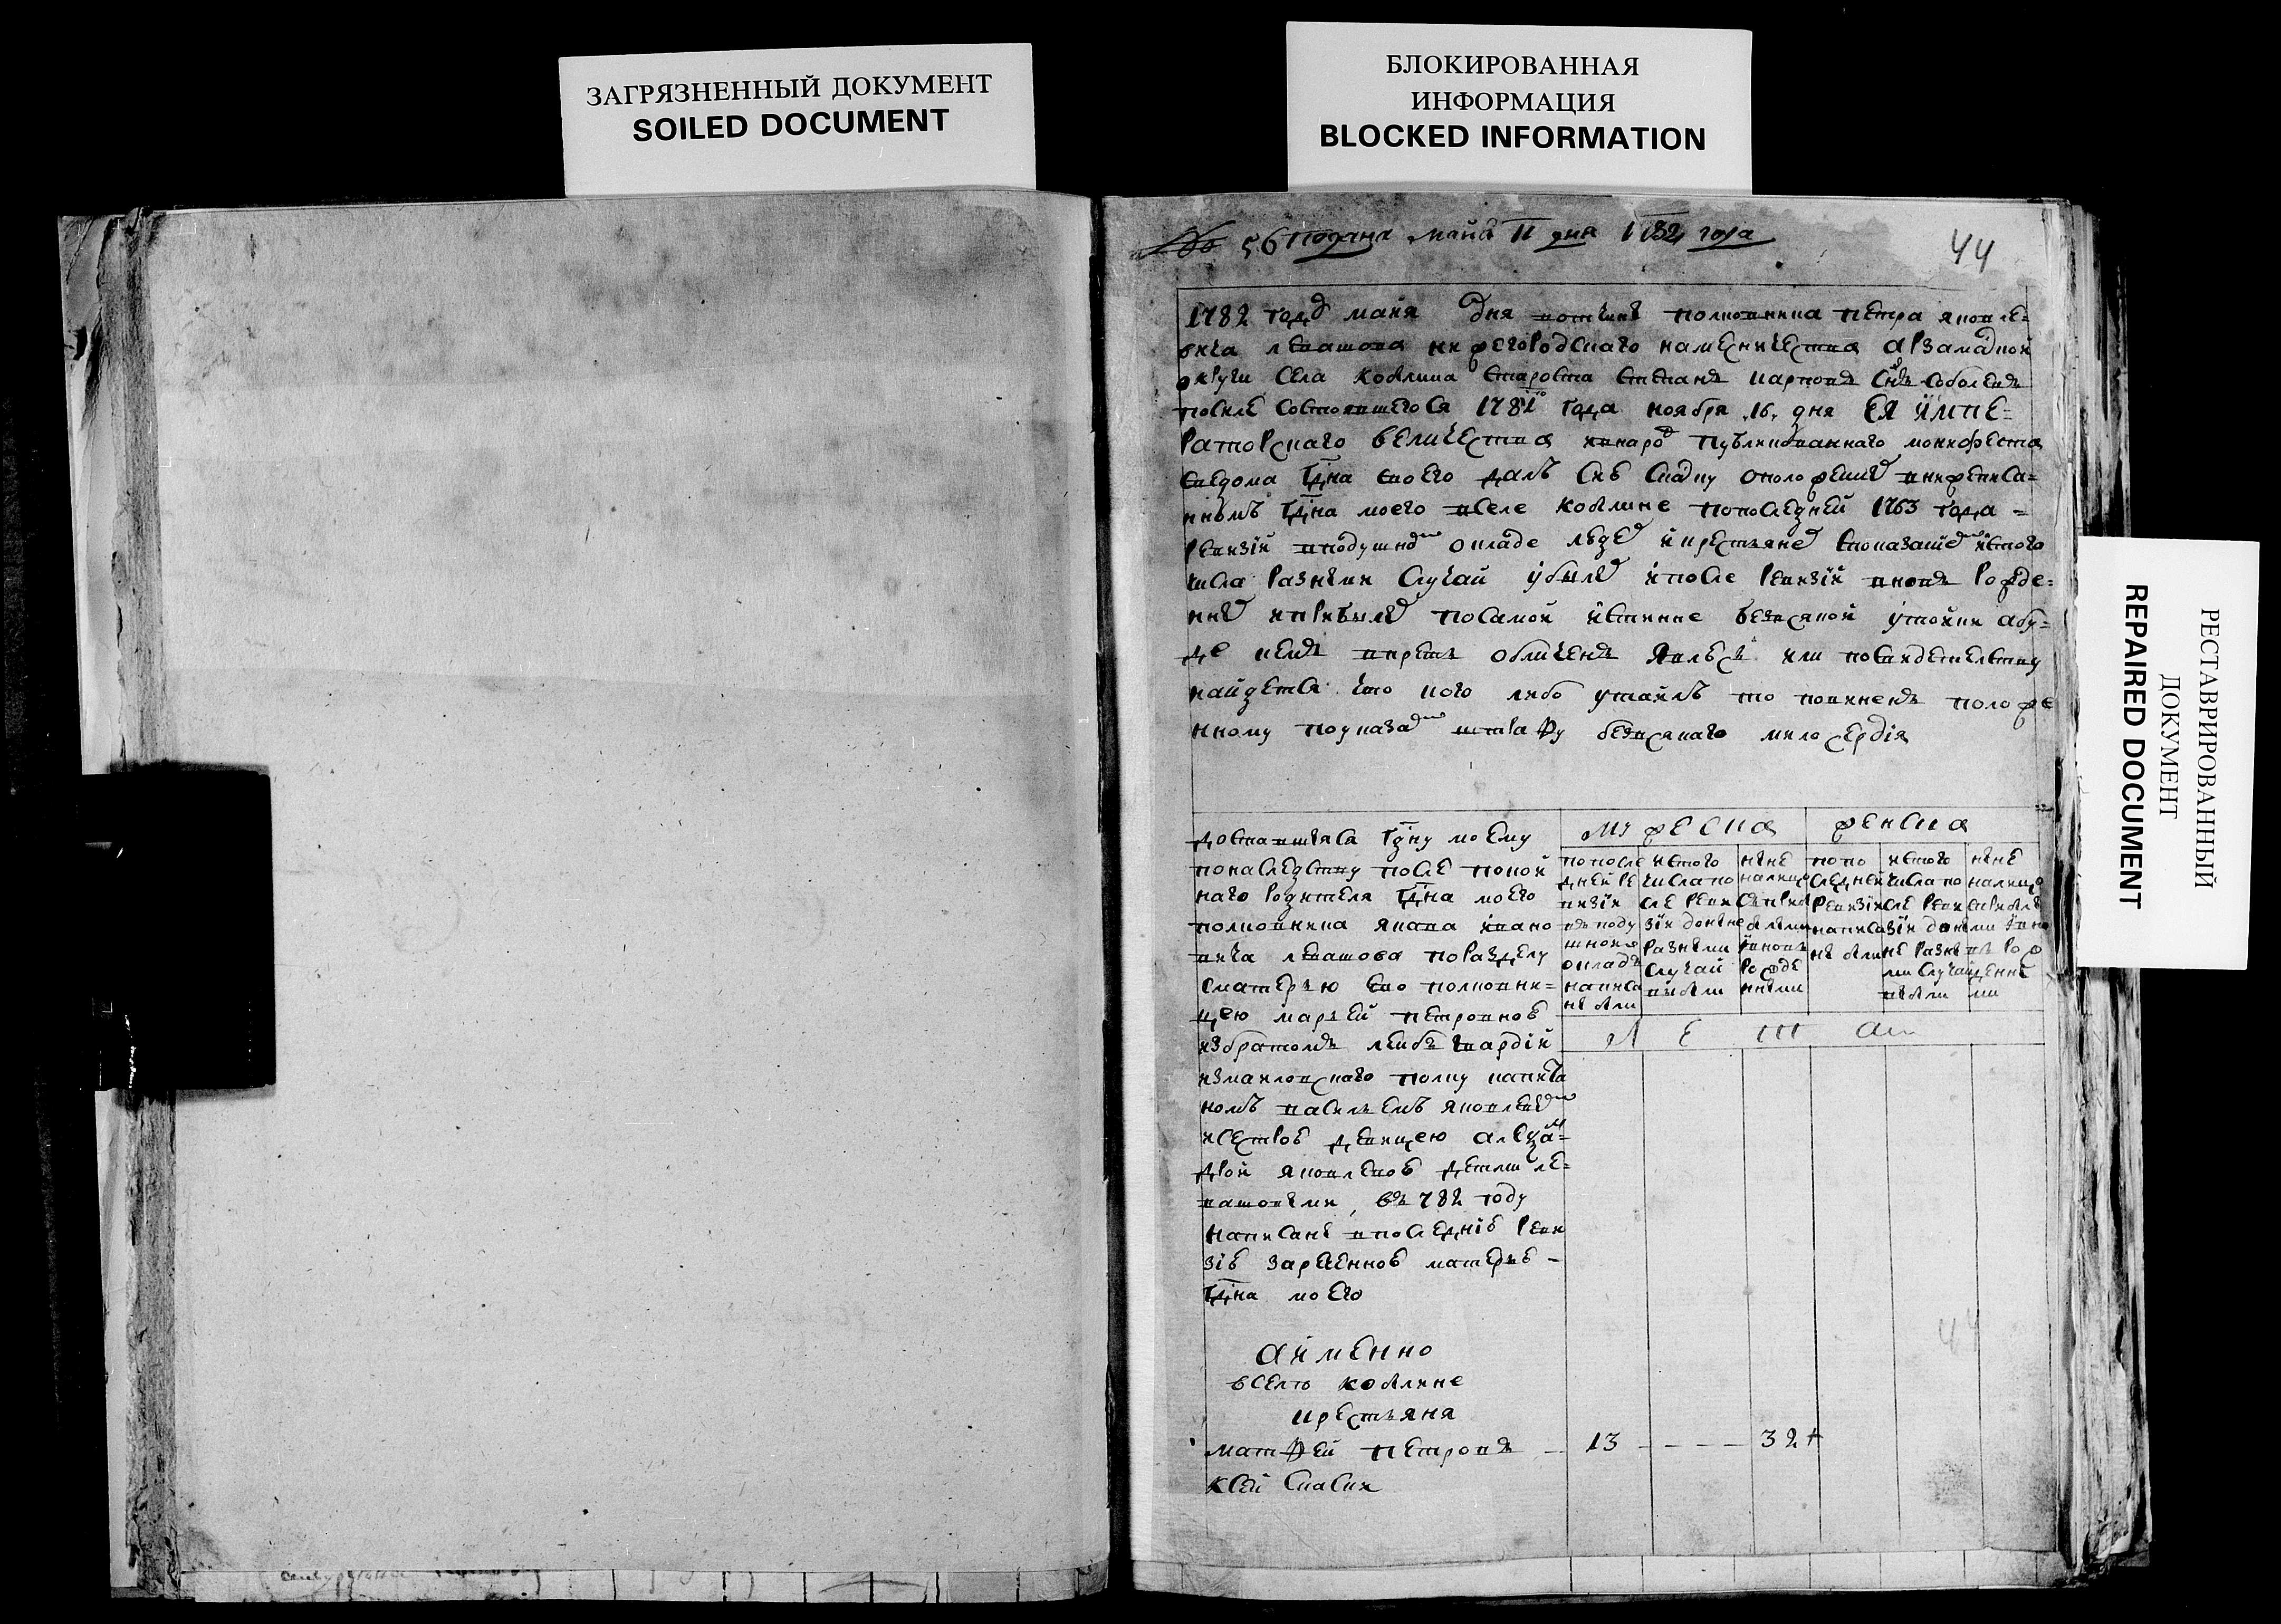 ЗАГРЯЗНЕННЫЙ ДОКУМЕНТ
SOILED DOCUMENT
БЛОКИРОВАННАЯ
ИНФОРМАЦИЯ
BLOCKED INFORMATION
56 подана майа 11 дня 1782 года
44
1782 году майя дня вотчины полковника петра яковле-
вича левашова нижегородскаго наместничества арзамаской
округи села коблина староста степанъ карповъ снъ соболевъ
после состоявшегося 1781го года ноября 16, дня ея импе-
раторскаго величества внарод публикованнаго монифеста
сведома гдна своего далъ сию скаску оположеных внижеписа-
нномъ гдна моего вселе коблине попоследней 1763 года -
ревизии вподушном окладе людех икрестьянех споказанием истого
числа разными случаи убылых ипосле ревизии вновь рожде-
нных иприбылых посамой истинне безвсякой утойки абу-
де кемъ впредь обличенъ явлюсь или посвидетелству
найдетса что кого либо утаилъ то повиненъ положе
нному поуказам штрафу безвсякаго милосердія
доставшияся гдну моему
понаследству после покой
наго родителя гдна моего
полковника якова ивано
вича левашова поразделу
сматерью ево полковни-
цею марьей петровной
избратомъ лейбъ гвардіи
измаиловскаго полку капита
номъ васильемъ яковлевым
исестрой девицею алексан-
дрой яковлевой детми ле-
вашовыми, въ 782 году
написаны впоследней реви
зіи заржевной матерью -
гдна моего
мужеска
женска
попосле
дней ре
визіи
въ поду
шномъ
окладе
написа
ны были
истого
числа по
сле реви
зіи доныне
разными
случаи
выбыли
ныне
налицо
спрiбы
лыми
ивновь
рожде
нными
попо
следней
ревизіи
написа
ны были
истого
числа по
сле реви
зіи доны
не разны
ми случаи
выбыли
ныне
налицо
сприбылы
ми ивно
вь рож
денны
ми
ЛЕТА
аименно
вселе коблине
крестьяня
матфей петровъ - 13 - - - - 32 +
РЕСТАВРИРОВАННЫЙ
ДОКУМЕНТ
REPAIRED DOCUMENT